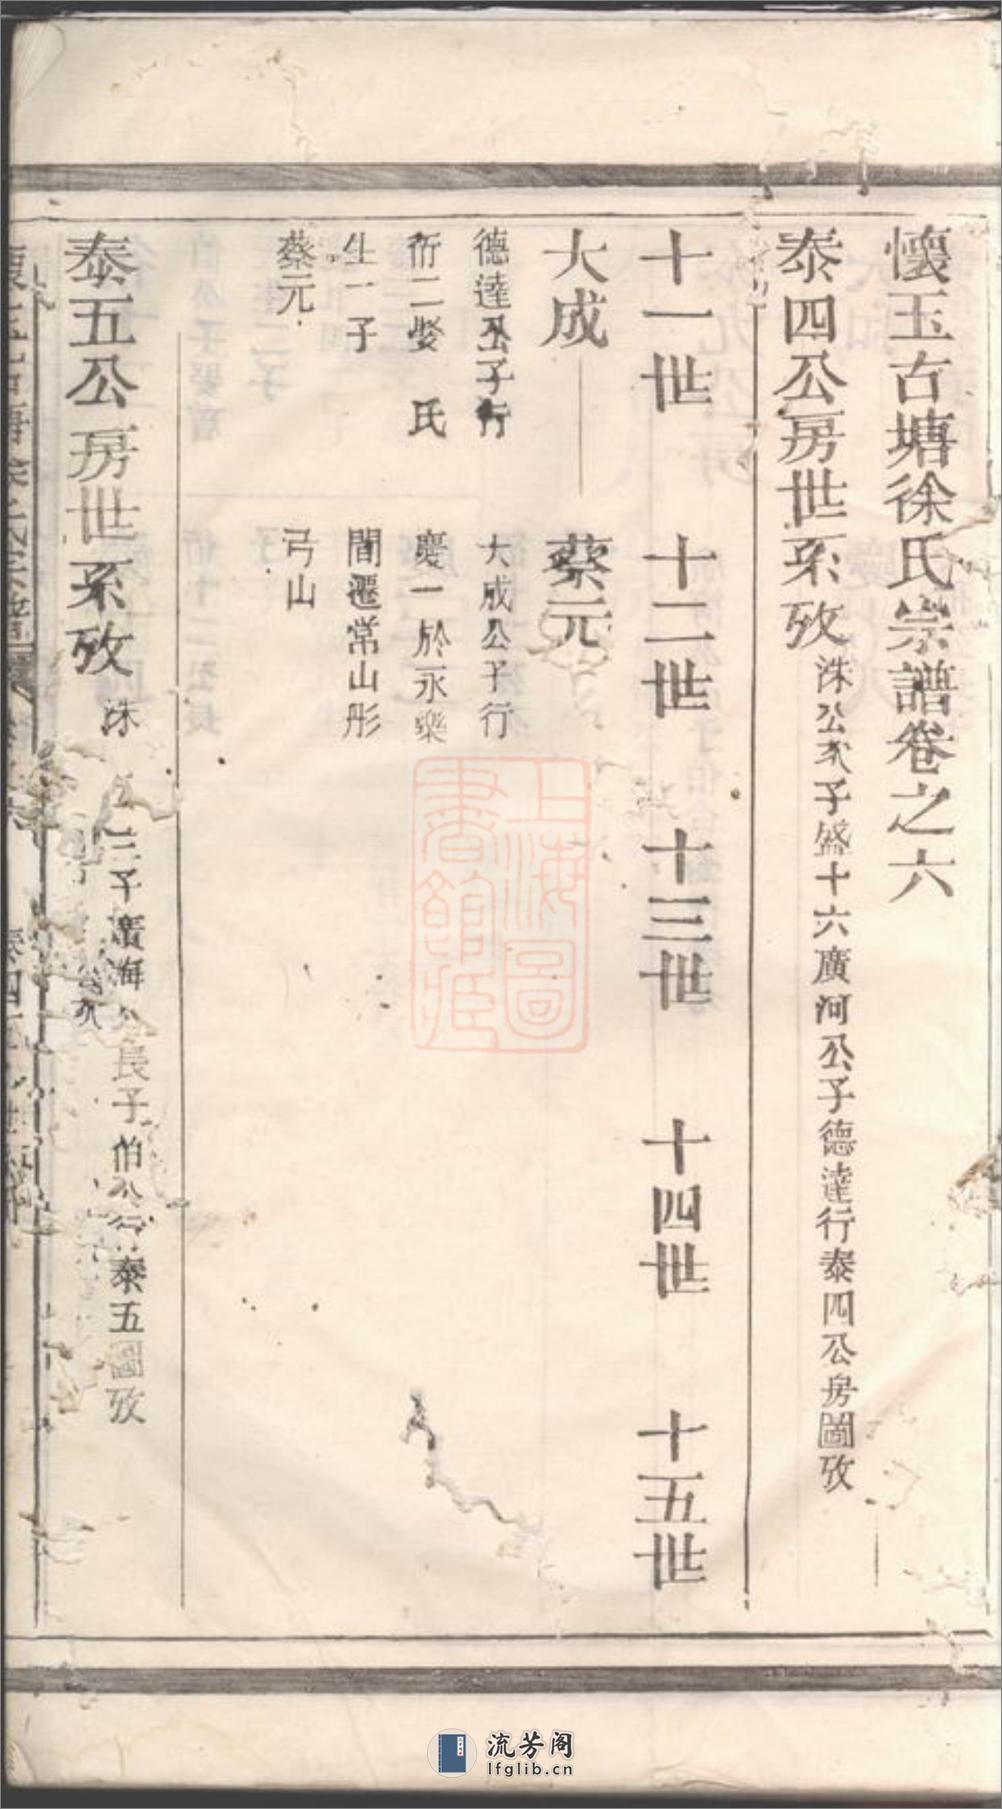 懷玉古塘徐氏宗譜卷之六
泰四公房世系攷 洙公次子盛十六廣河公子德達行泰四公房圖攷
十一世 十二世 十三世 十四世 十五世
大成 蔡元
德達公子行
衍二娶 氏
生一子
蔡元
大成公子行
慶一於永樂
間遷常山彤
弓山
泰五公房世系攷 洙 三子廣海公長子伯公行泰五圖攷
上海圖
書館藏
流芳阁
lfglib.cn